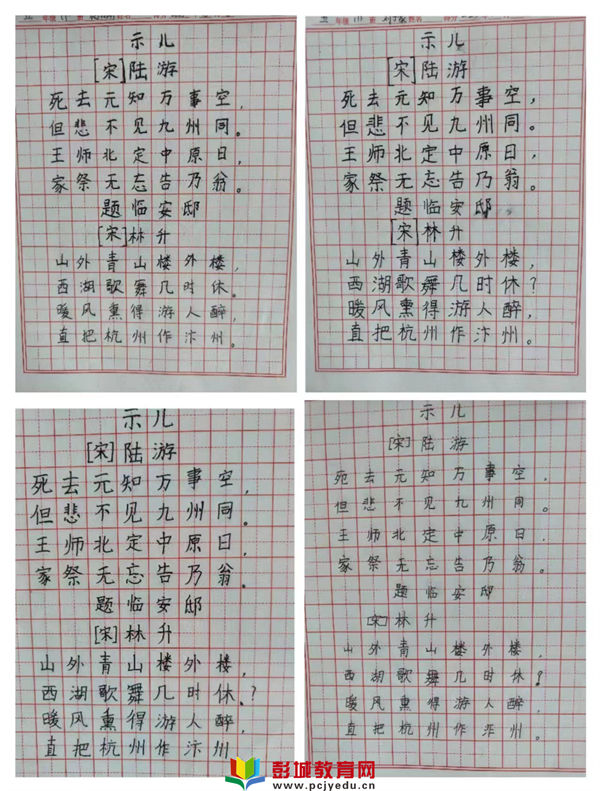 年级 班 姓名
示儿
[宋]陆游
死去元知万事空，
但悲不见九州同。
王师北定中原日，
家祭无忘告乃翁。
题临安邸
[宋]林升
山外青山楼外楼，
西湖歌舞几时休。
暖风熏得游人醉，
直把杭州作汴州。
五 年级 班 姓名 得分
示儿
[宋]陆游
死去元知万事空，
但悲不见九州同。
王师北定中原日，
家祭无忘告乃翁。
题临安邸
[宋]林升
山外青山楼外楼，
西湖歌舞几时休？
暖风熏得游人醉，
直把杭州作汴州。
示儿
[宋]陆游
死去元知万事空，
但悲不见九州同。
王师北定中原日，
家祭无忘告乃翁。
题临安邸
[宋]林升
山外青山楼外楼，
西湖歌舞几时休？
暖风熏得游人醉，
直把杭州作汴州
示儿
[宋]陆游
死去元知万事空，
但悲不见九州同。
王师北定中原日，
家祭无忘告乃翁。
题临安邸
[宋]林升
山外青山楼外楼，
西湖歌舞几时休？
暖风熏得游人醉，
直把杭州作汴州。
彭城教育网
www.pcjyedu.cn